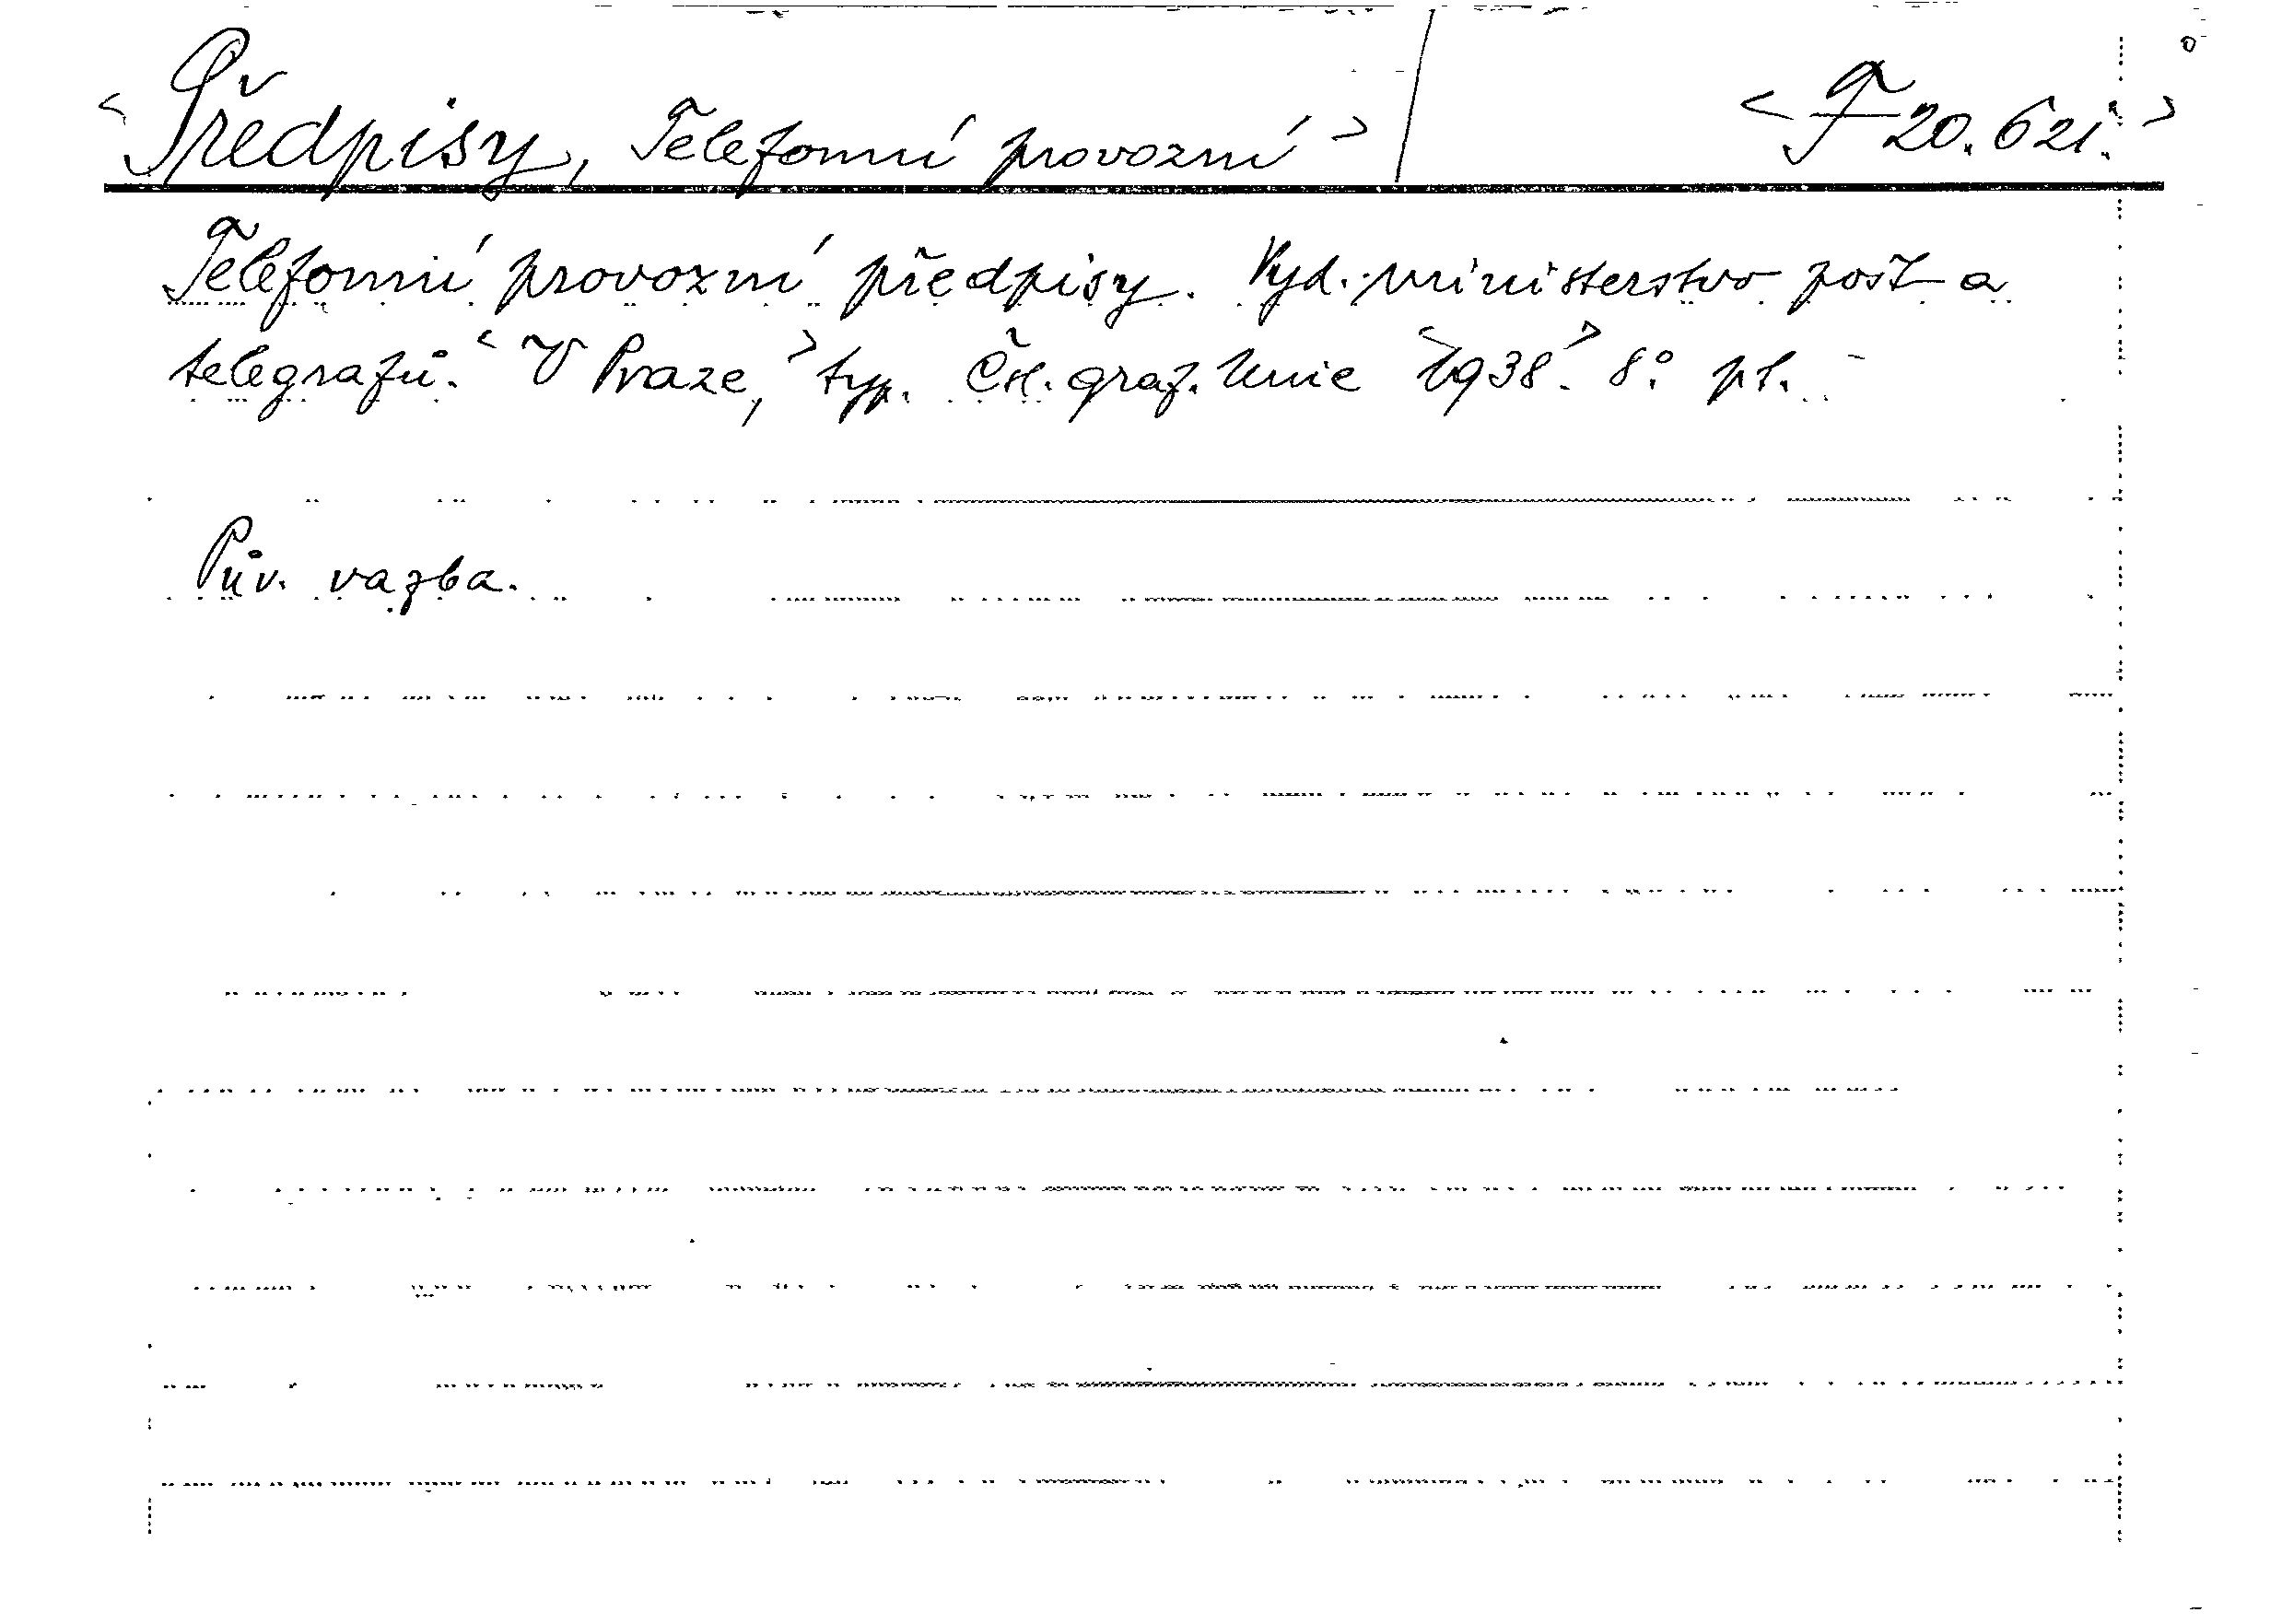 <Předpisy, Telefonní provozní> <F 20.621.>
Telefonní provozní předpisy. Vyd. ministerstvo pošt a
telegrafů. <V Praze,> typ. Čsl. graf. Unie <1938>. 8° pl. -
Pův. vazba.